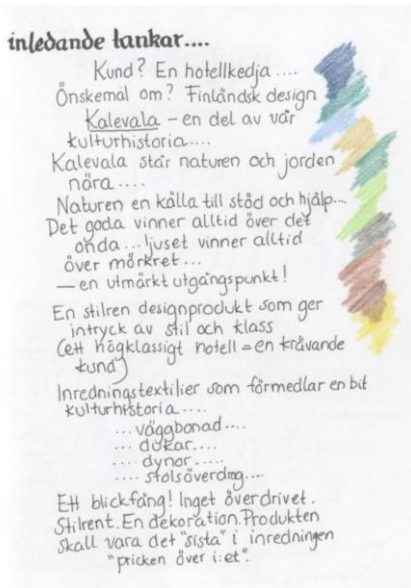 inledande tankar....
Kund? En hotellkedja ....
Önskemål om? Finländsk design
Kalevala – en del av vår
kulturhistoria....
Kalevala står naturen och jorden
nära ....
Naturen en källa till stöd och hjälp...
Det goda vinner alltid över det
onda...ljuset vinner alltid
över mörkret...
— en utmärkt utgångspunkt!
En stilren designprodukt som ger
intryck av stil och klass
(ett högklassigt hotell = en krävande
kund)
Inredningstextilier som förmedlar en bit
kulturhistoria....
...väggbonad....
... dukar....
.... dynor.....
.... stolsöverdrag....
Ett blickfång! Inget överdrivet.
Stilrent. En dekoration. Produkten
skall vara det "sista" i inredningen
"pricken över i:et".